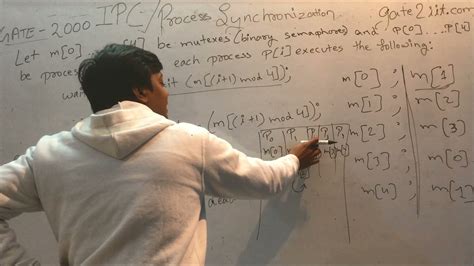 GATE-2000 IPC/Process Synchronization gate2iit.com
Let m[0] 4] be mutexes (binary semaphores) and P[0]....P[4]
be proces each process P[i] executes the following:
wa it (m[(i+1) mod 4]);
m[0] ; m[1]
m[1] ; m[2]
(m[(i+1) mod 4]);
m[2] ; m[3]
P0 P1
m[0]
m[3] ; m[0]
m[4] ; m[1]